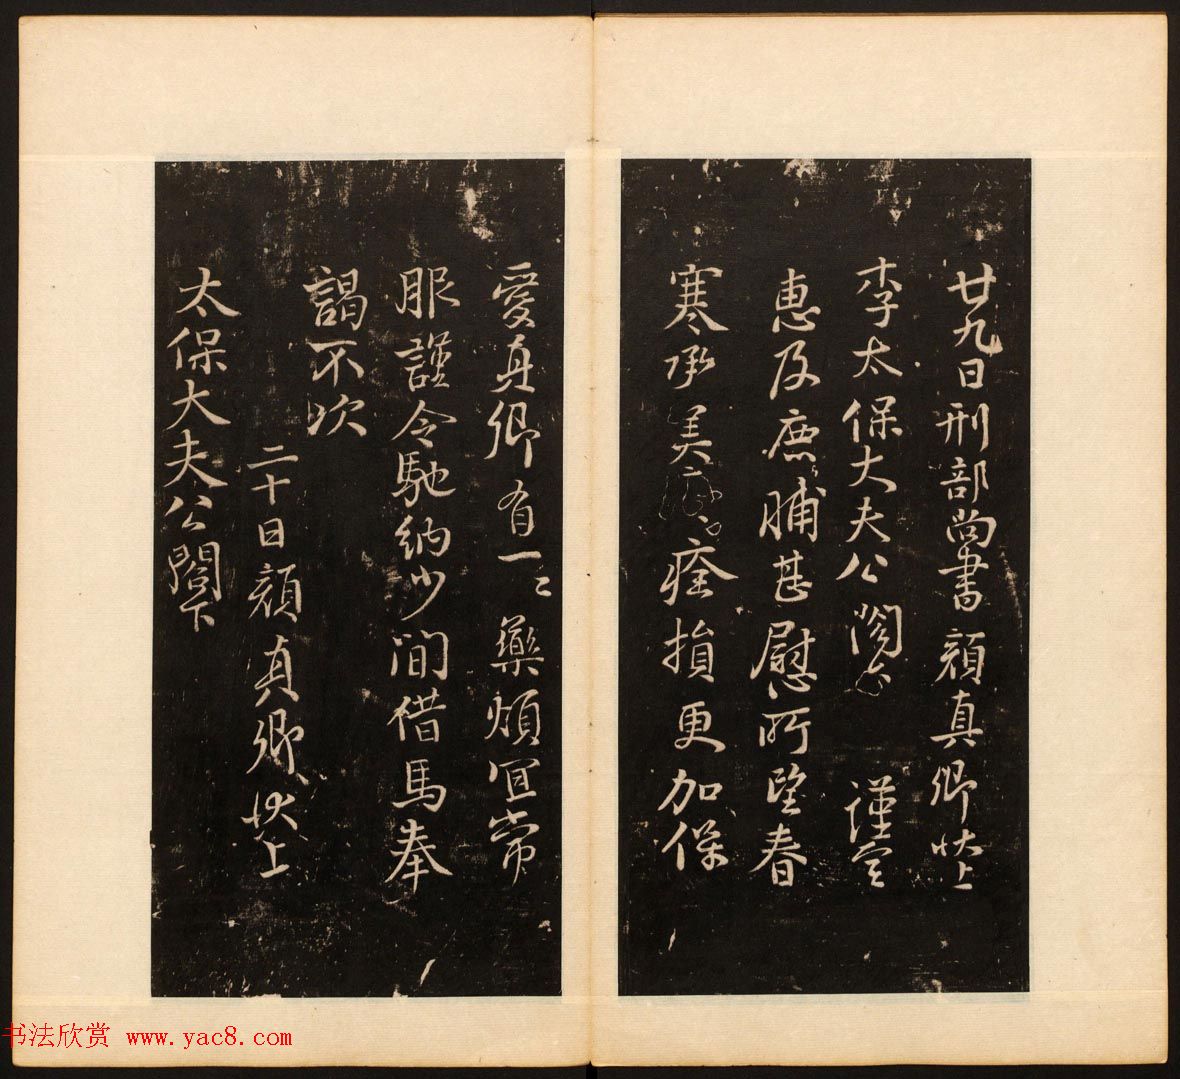 廿九日刑部尚書顏真卿狀上
李太保大夫公閣下 謹空
惠及鹿脯甚慰所望春
寒承美痊損更加保
愛真卿有一二藥頗宜常
服謹令馳納少間借馬奉
謁不次
二十日顏真卿狀上
太保大夫公閣下
书法欣赏 www.yac8.com